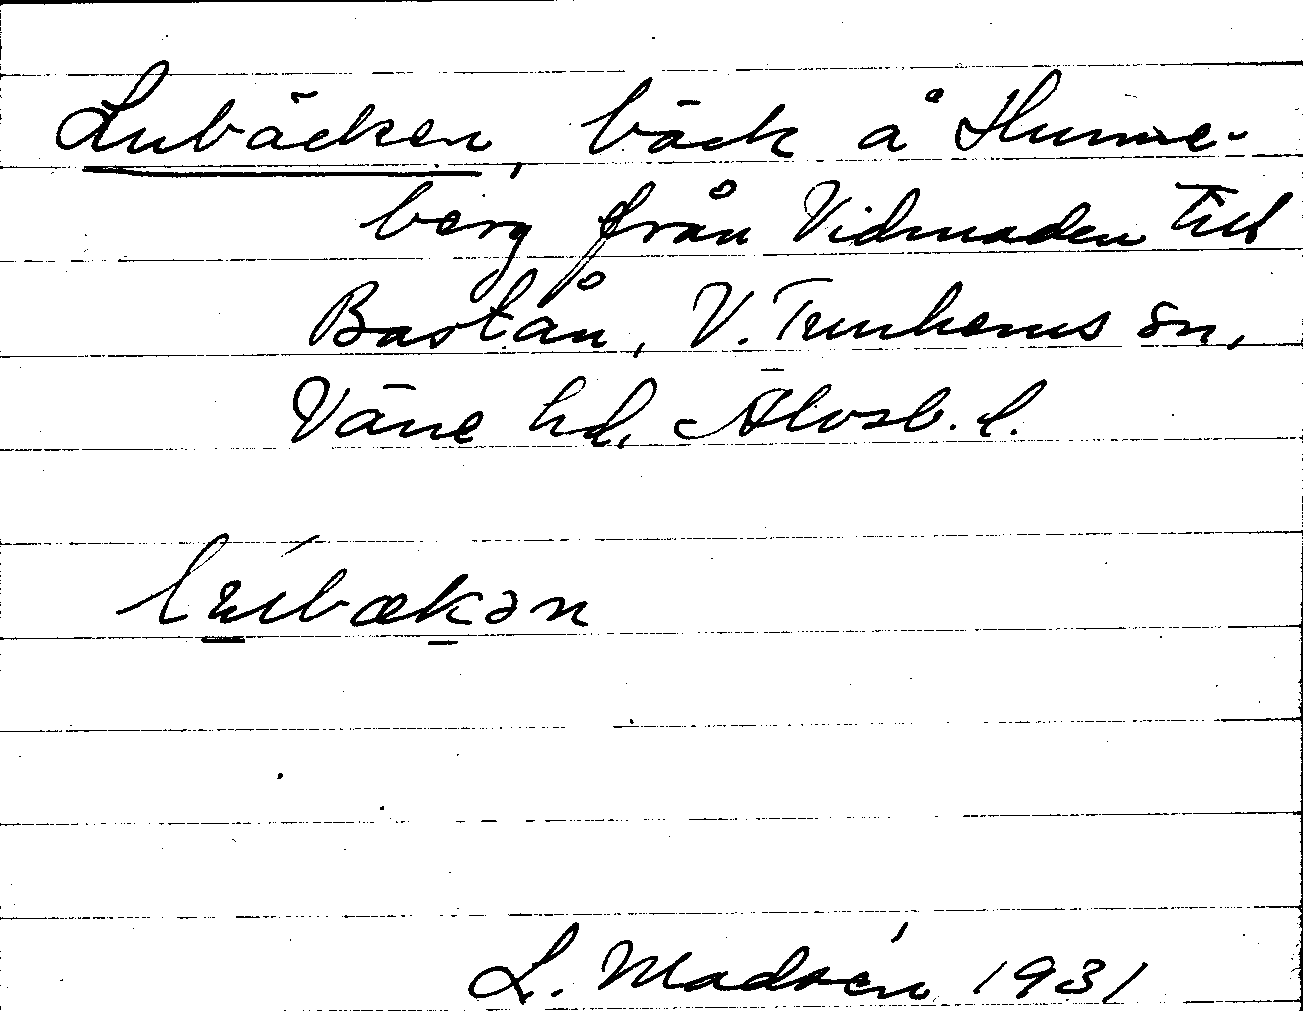 Lubäcken, bäck å Hunne-
berg från Vidmaden till
Bastån, V. Tunhems sn,
Väne hd, Älvsb. l.
L. Madsén 1931